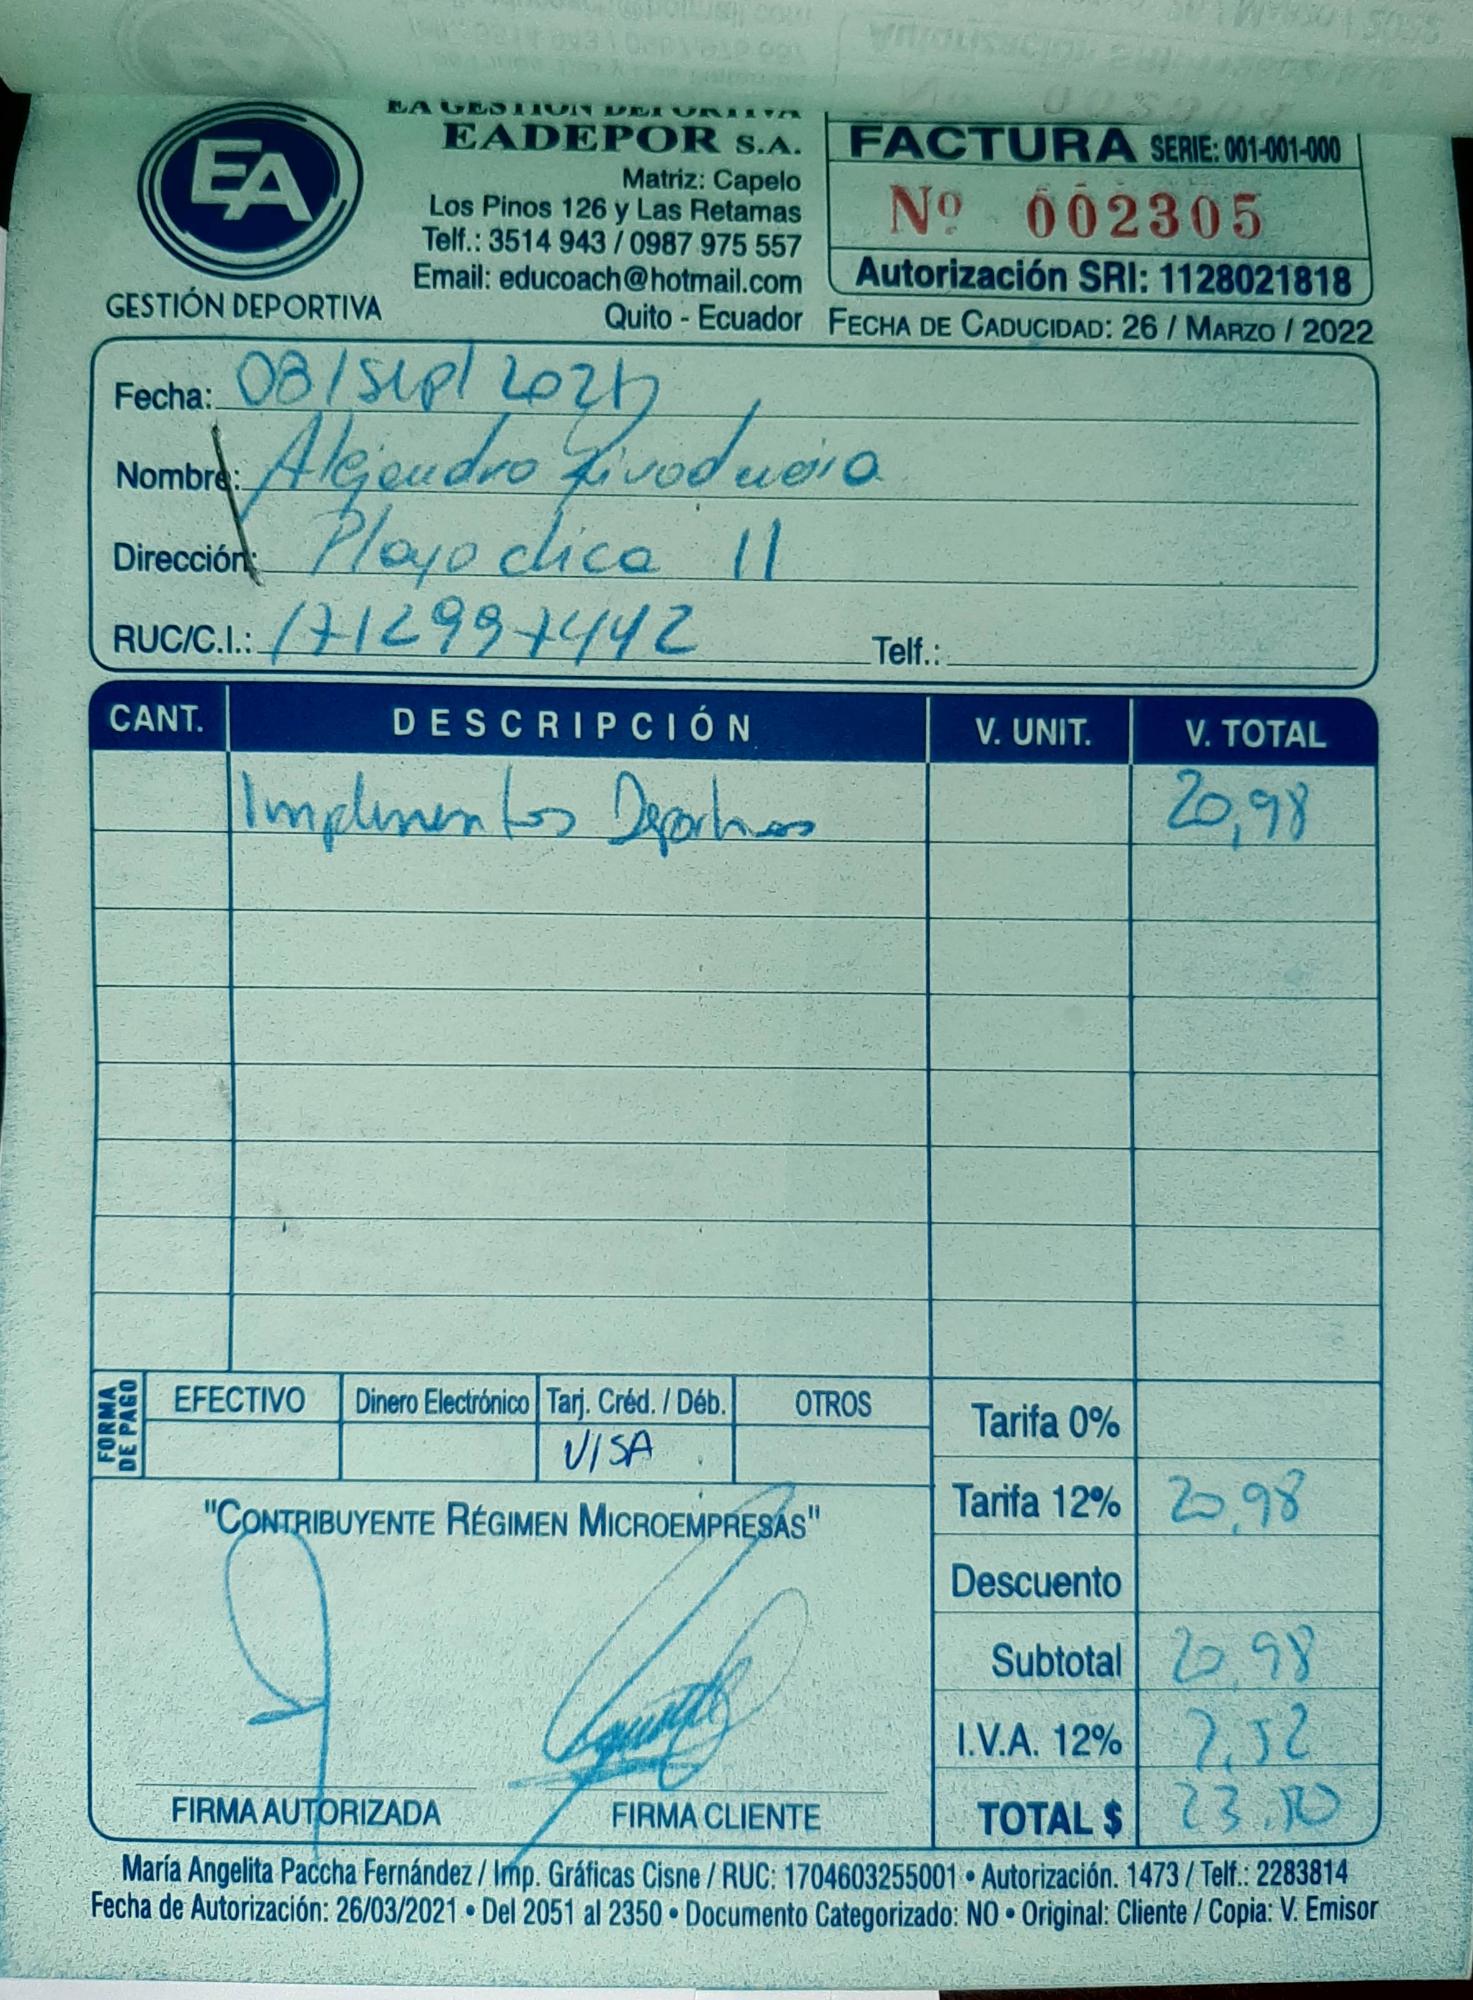 EA GESTIÓN DEPORTIVA
EADEPOR S.A.
Matriz: Capelo
Los Pinos 126 y Las Retamas
Telf.: 3514 943 / 0987 975 557
Email: educoach@hotmail.com
Quito - Ecuador
EA
GESTIÓN DEPORTIVA
FACTURA SERIE: 001-001-000
Nº 002305
Autorización SRI: 1128021818
FECHA DE CADUCIDAD: 26 / MARZO / 2022
Fecha: 08/sep/2021
Nombre: Alejandro
Dirección: Playa chica 11
RUC/C.I.: 1712997442 Telf.:
CANT. DESCRIPCIÓN V. UNIT. V. TOTAL
Implementos Deportivos 20,98
FORMA DE PAGO
EFECTIVO Dinero Electrónico Tarj. Créd. / Déb. OTROS
VISA
Tarifa 0%
Tarifa 12% 20,98
Descuento
Subtotal 20,98
I.V.A. 12% 2,52
TOTAL $ 23,50
"CONTRIBUYENTE RÉGIMEN MICROEMPRESAS"
FIRMA AUTORIZADA FIRMA CLIENTE
María Angelita Paccha Fernández / Imp. Gráficas Cisne / RUC: 1704603255001 • Autorización. 1473 / Telf.: 2283814
Fecha de Autorización: 26/03/2021 • Del 2051 al 2350 • Documento Categorizado: NO • Original: Cliente / Copia: V. Emisor